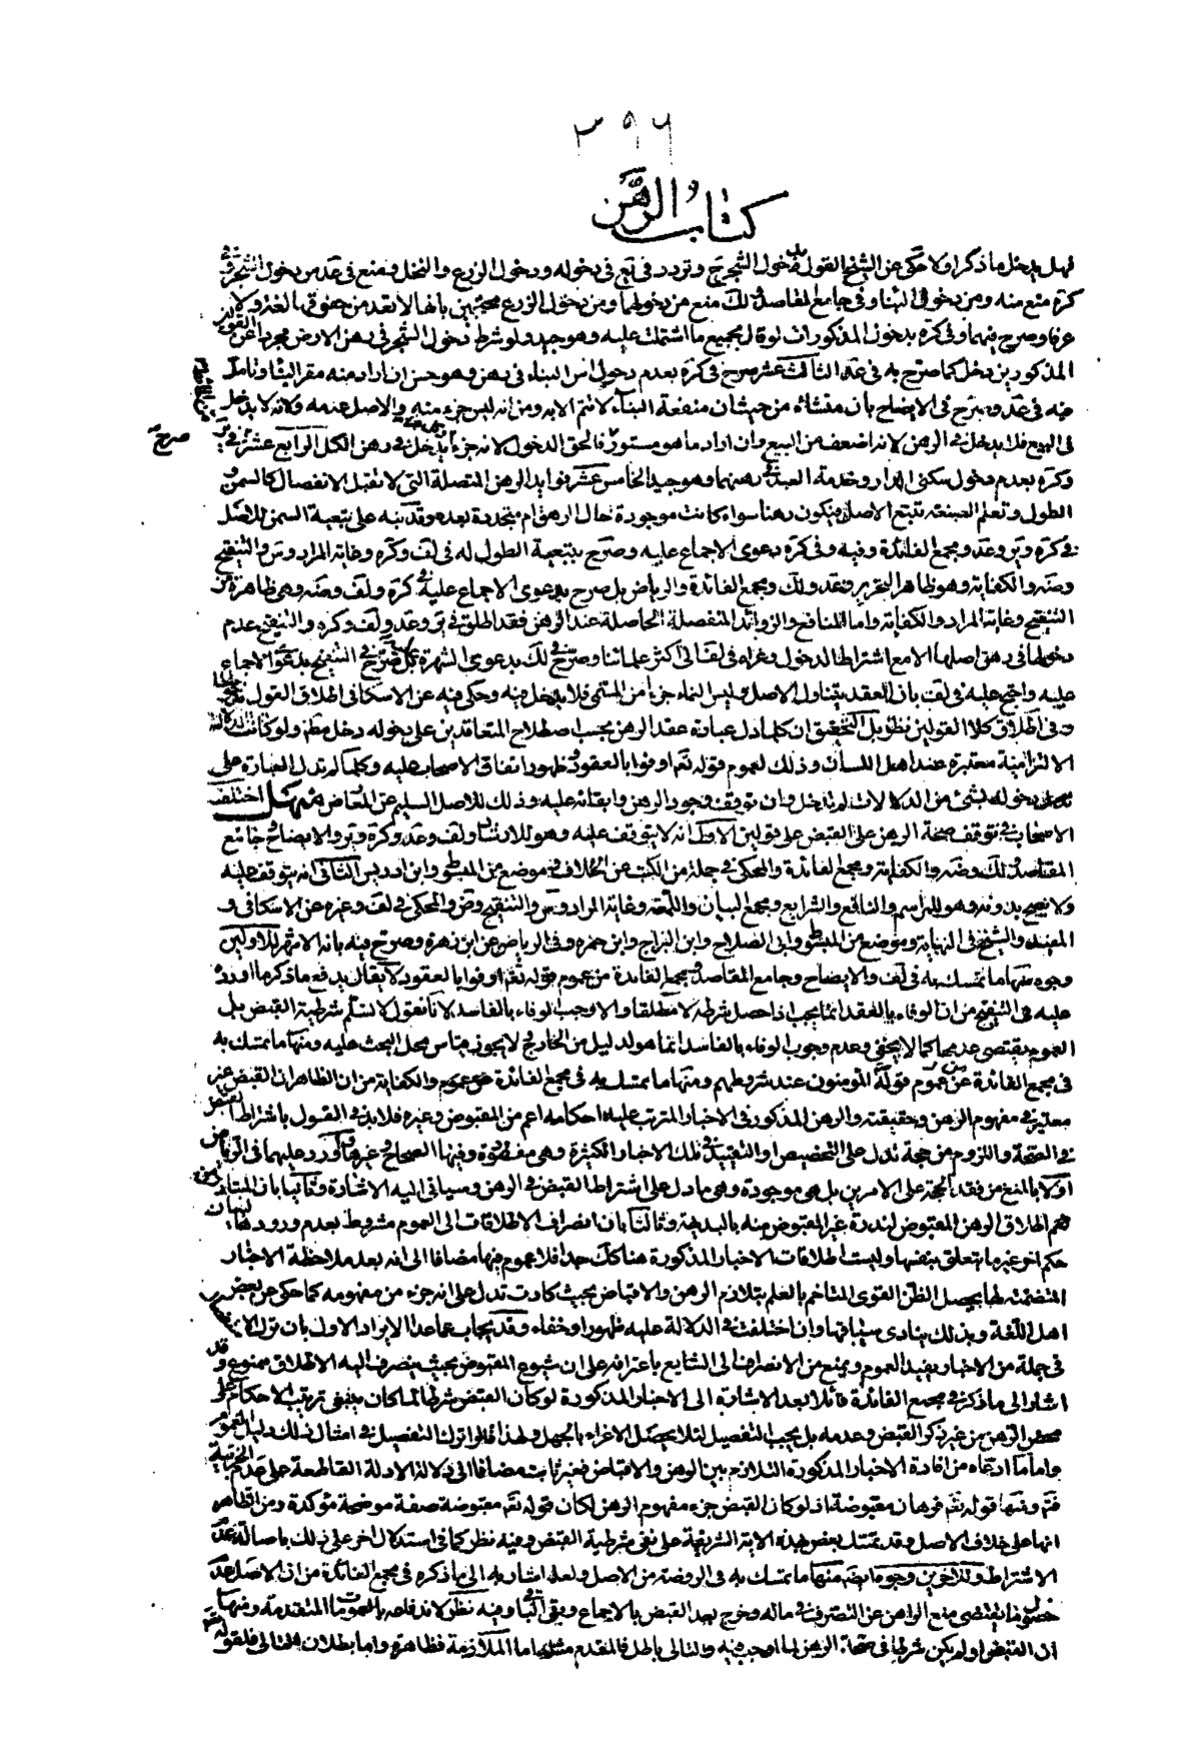 ٣٥٦
كتاب الرهن
فهل يدخل ما ذكر اولا حكى عن الشيخ القول بدخول الشجر وتردد في يع في دخوله ودخول الزرع والنخل ومنع في عد من دخول الشجر وفي
كره منع منه ومن دخول البناء وفي جامع المقاصد كك منع من دخولهما ومن دخول الزرع محتجين بانها لا تعد من حقوقها لغة ولا
عرفا وصرح فيهما وفي كره بدخول المذكورات لو قال بجميع ما اشتملت عليه وهو جيد ولو شرط دخول الشجر في رهن الارض
المذكورين دخل كما صرح به في عد الثالث عشر صرح في كره بعدم دخول اس البناء في رهن وهو حسن ان اراد منه مقر البناء وتامل
فيه في عد وصرح في الايضاح بان منشائه من حيث ان منفعة البناء لا تتم الا به ومن انه ليس جزء منه والاصل عدمه ولانه لا يدخل
في البيع فلا يدخل في الرهن لانه اضعف من البيع وان اراد ما هو مستور فالحق الدخول لانه جزء يدخل في رهن الكل الرابع عشر
صرح
وكره بعدم دخول سكنى الدار وخدمة العبد في رهنهما وهو جيد الخامس عشر فوايد الرهن المتصلة التي لا تقبل الانفصال كالسمن و
الطول وتعلم الصنعة تتبع الاصل فيكون رهنا سواء كانت موجودة حال الرهن ام متجددة بعده وقد نبه على تبعية السمن للاصل
في كره وير وعد ومجمع الفائدة وفيه وفي كره دعوى الاجماع عليه وصرح بتبعية الطول له في لف وكره وغاية المراد وس والتنقيح
وضه والكفاية وهو ظاهر التحرير وعد ولك ومجمع الفائدة والرياض بل صرح بدعوى الاجماع عليه في كره ولف وضه وهي ظاهرة من
التنقيح وغاية المراد والكفاية واما المنافع والزوائد المنفصلة الحاصلة عند الرهن فقد اطلق في ير وعد ولف وكره والتنقيح عدم
دخولها في رهن اصلها الا مع اشتراط الدخول وعزاه في لف الى اكثر علمائنا وصرح في لك بدعوى الشهرة بل صرح في التنقيح بدعوى الاجماع
عليه واحتج عليه في لف بان العقد يتناول الاصل وليس النماء جزء من المسمى فلا يدخل فيه وحكى فيه عن الاسكافي اطلاق القول
وفي اطلاق كلا القولين نظر بل التحقيق ان كلما دل عبارة عقد الرهن بحسب اصطلاح المتعاقدين على دخوله دخل مطلقا ولو كانت الدلالة
الالتزامية معتبرة عند اهل اللسان وذلك لعموم قوله تعالى اوفوا بالعقود وظهور اتفاق الاصحاب عليه وكلما لم تدل العبارة على
دخوله بشئ من الدلالات لم تدخل وان توقف وجود الرهن وابقائه عليه وذلك للاصل السليم عن المعارض منهل اختلف
الاصحاب في توقف صحة الرهن على القبض على قولين الاول انه لا يتوقف عليه وهو للارشاد ولف وعد وكره وير والايضاح وجامع
المقاصد ولك وضه والكفاية ومجمع الفائدة والمحكى في جملة من الكتب عن الخلاف وموضع من المبسوط وابن ادريس الثاني انه يتوقف عليه
ولا يصح بدونه وهو للمراسم والنافع والشرايع ومجمع البيان واللمعة وغاية المراد وس والتنقيح وض والمحكى في لف وغيره عن الاسكافي و
المفيد والشيخ في النهاية وموضع من المبسوط وابي الصلاح وابن البراج وابن حمزه وفي الرياض عن ابن زهرة وصرح فيه بانه الاشهر للاولين
وجوه منها ما تمسك به في لف والايضاح وجامع المقاصد ومجمع الفائدة من عموم قوله تعالى اوفوا بالعقود لا يقال يدفع ما ذكر ما اورده
عليه في التنقيح من ان الوفاء بالعقد انما يجب اذا حصل شرطه لا مطلقا والا وجب الوفاء بالفاسد لانا نقول لا نسلم شرطية القبض بل
العموم يقتضى عدمها كما لا يخفى وعدم وجوب الوفاء بالفاسد انما هو لدليل من الخارج لا يجوز قياس محل البحث عليه ومنها ما تمسك به
في مجمع الفائدة من عموم قوله المؤمنون عند شروطهم ومنها ما تمسك به في مجمع الفائدة والكفاية من ان الظاهر ان القبض غير
معتبر في مفهوم الرهن وحقيقته والرهن المذكور في الاخبار المترتب عليه احكامه اعم من المقبوض وغيره فلا بد في القول باشتراط القبض
في الصحة واللزوم من حجة تدل على التخصيص او التقييد في تلك الاخبار الكثيرة وهي مفقودة وفيها الصحاح وغيرها واورد عليهما في الرياض
اولا بالمنع من فقد الحجة على الامرين بل هي موجودة وهي ما دل على اشتراط القبض في الرهن وسياتي اليه الاشارة وثانيا بان المتبادر من
اطلاق الرهن المقبوض لندرة غير المقبوض منه بالبديهة وثالثا بان انصراف الاطلاقات الى العموم مشروط بعدم ورودها لبيان
حكم اخر غير ما يتعلق بنفسها وليست اطلاقات الاخبار المذكورة هنا كك جدا فلا عموم فيها مضافا الى انه بعد ملاحظة الاخبار
المتضمنة لها يحصل الظن القوى المتاخم بالعلم بتلازم الرهن والاقباض بحيث كادت تدل على انه جزء من مفهومه كما حكى عن بعض
اهل اللغة وبذلك ينادى سياقها وان اختلفت في الدلالة عليه ظهورا وخفاء وقد يجاب عما عدا الايراد الاول بان ترك
في جملة من الاخبار يفيد العموم ويمنع من الانصراف الى الشايع باعترافه على ان شيوع المقبوض بحيث ينصرف اليه الاطلاق ممنوع وقد
اشار الى ما ذكر في مجمع الفائدة قائلا بعد الاشارة الى الاخبار المذكورة لو كان القبض شرطا لما كان ينبغى ترتب الاحكام على
محض الرهن من غير ذكر القبض وعدمه بل يجب التفصيل لئلا يحصل الاغراء بالجهل ولهذا قالوا ترك التفصيل في امثال ذلك دليل العموم
واما ما ادعاه من افادة الاخبار المذكورة التلازم بين الرهن والاقباض فغير ثابت مضافا الى دلالة الادلة القاطعة على عدم الجزئية
فتم ومنها قوله تعالى فرهان مقبوضة اذ لو كان القبض جزء مفهوم الرهن لكان قوله تعالى مقبوضة صفة موضحة مؤكدة ومن الظاهر
انها على خلاف الاصل وقد تمسك بعض بهذه الاية الشريفة على نفى شرطية القبض وفيه نظر كما في استدلال اخر على ذلك باصالة عدم
الاشتراط وللاخرين وجوه ايضا منها ما تمسك به في الروضة من الاصل ولعله اشار به الى ما ذكره في مجمع الفائدة من ان الاصل عدم
حصول ما يقتضى منع الراهن عن التصرف في ماله وخرج بعد القبض بالاجماع وبقى الباقي وفيه نظر لاندفاعه بالعمومات المتقدمة ومنها
ان القبض لو لم يكن شرطا في صحة الرهن لما وجب فيه والتالى باطل فالمقدم مثله اما الملازمة فظاهرة واما بطلان التالى فلقوله